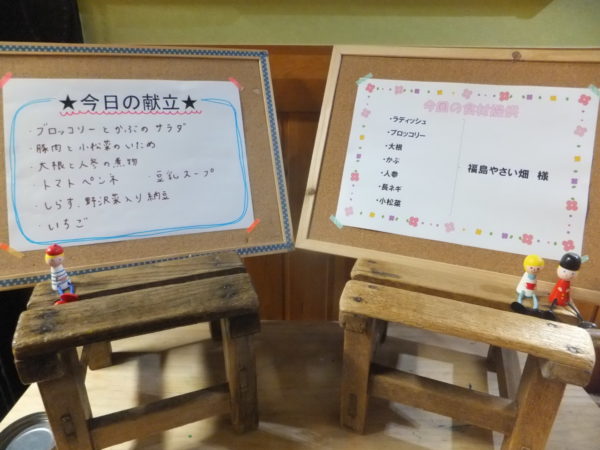 ★今日の献立★
・ブロッコリーとかぶのサラダ
・豚肉と小松菜のいため
・大根と人参の煮物
・トマトペンネ ・豆乳スープ
・しらす、野沢菜入り納豆
・いちご
今回の食材提供
・ラディッシュ
・ブロッコリー
・大根
・かぶ
・人参
・長ネギ
・小松菜
福島やさい畑 様